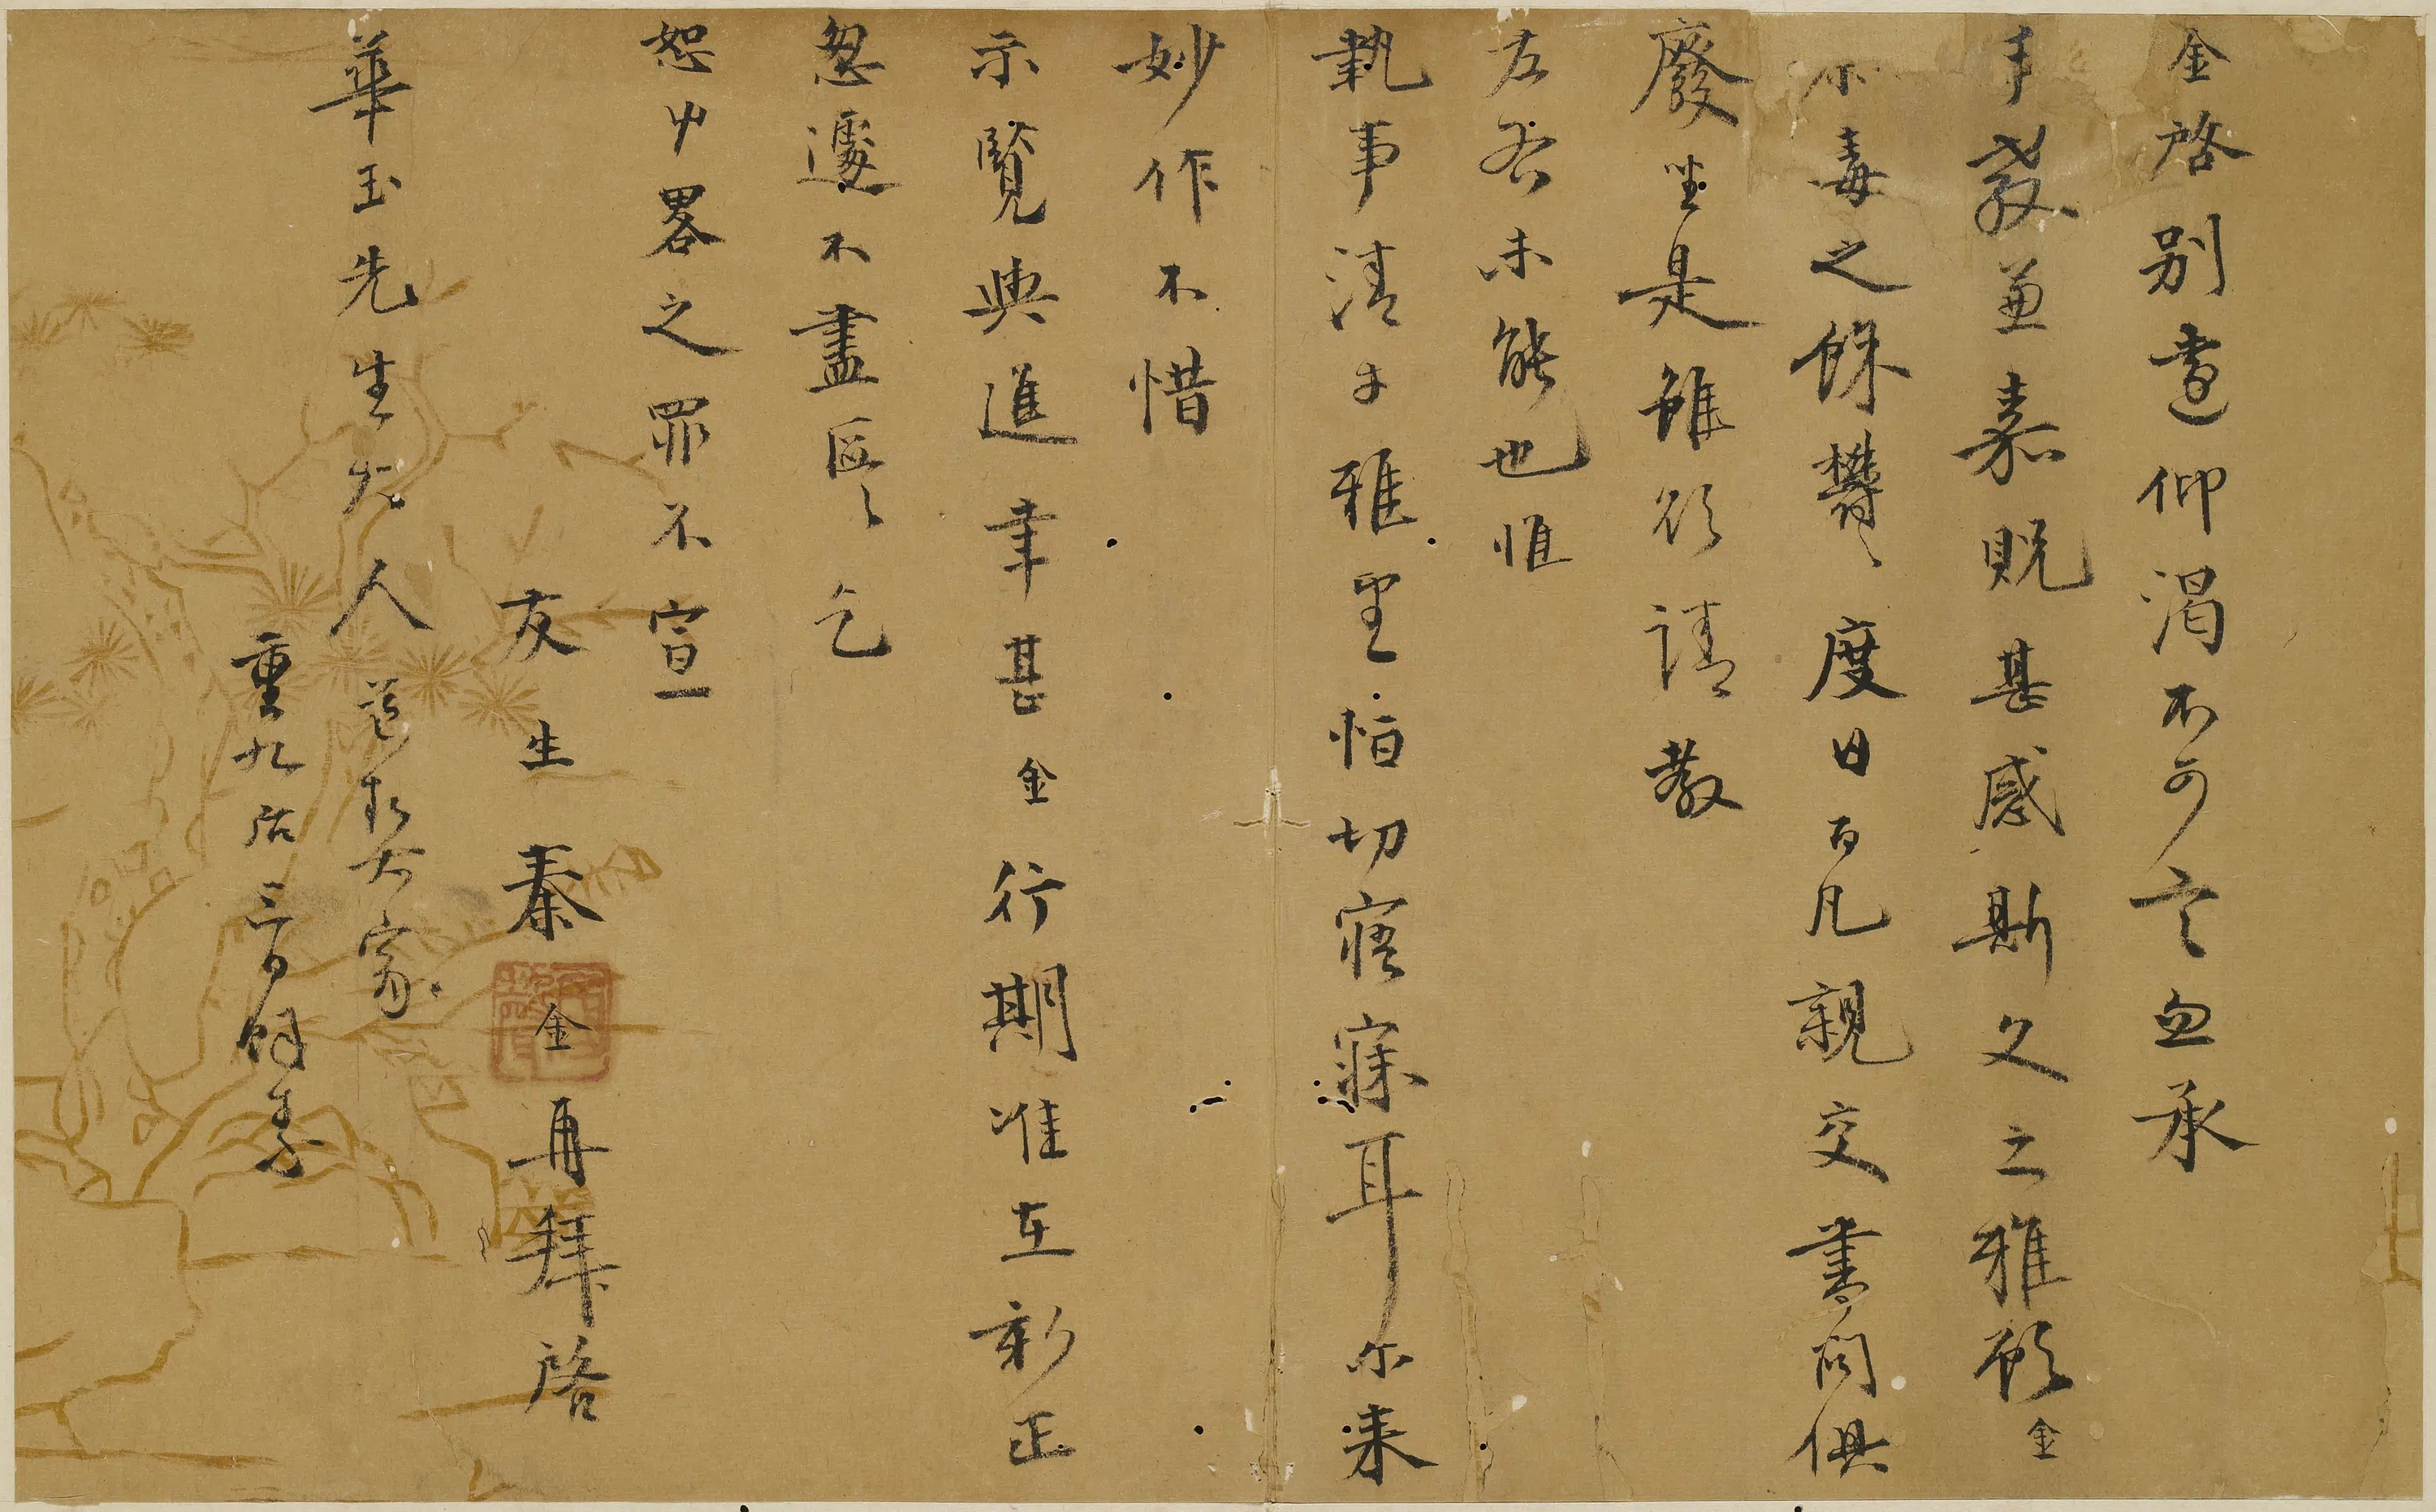 金啓別遠仰渴不可言忽承
手教並嘉貺甚感斯文之雅顧金
荼毒之餘欝欝度日百凡親交書問俱
廢坐是雖欲請教
左右未能也惟
執事清才雅望恒切寤寐耳尔来
妙作不惜
示覽與進幸甚金行期准在新正
怱遽不盡區區乞
恕中畧之罪不宣
友生秦金再拜啓
華玉先生大人道契大家
重九後三日